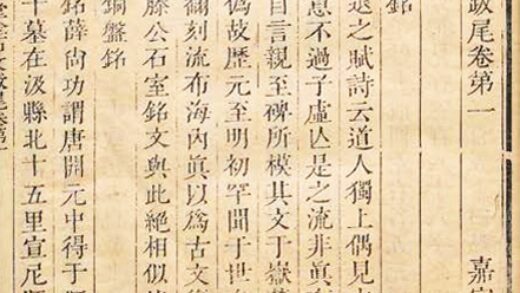 跋尾卷第一 嘉
銘
退之賦詩云道人獨上偶見
息不過子虛亾是之流非眞
自言親至碑所模其文于嶽
偽故歷元至明初罕聞于世
翻刻流布海內眞以爲古文
滕公石室銘文與此絕相似
銅盤銘
銘薛尙功謂唐開元中得于
十墓在汲縣北十五里宣尼
堂金石文跋尾卷第一